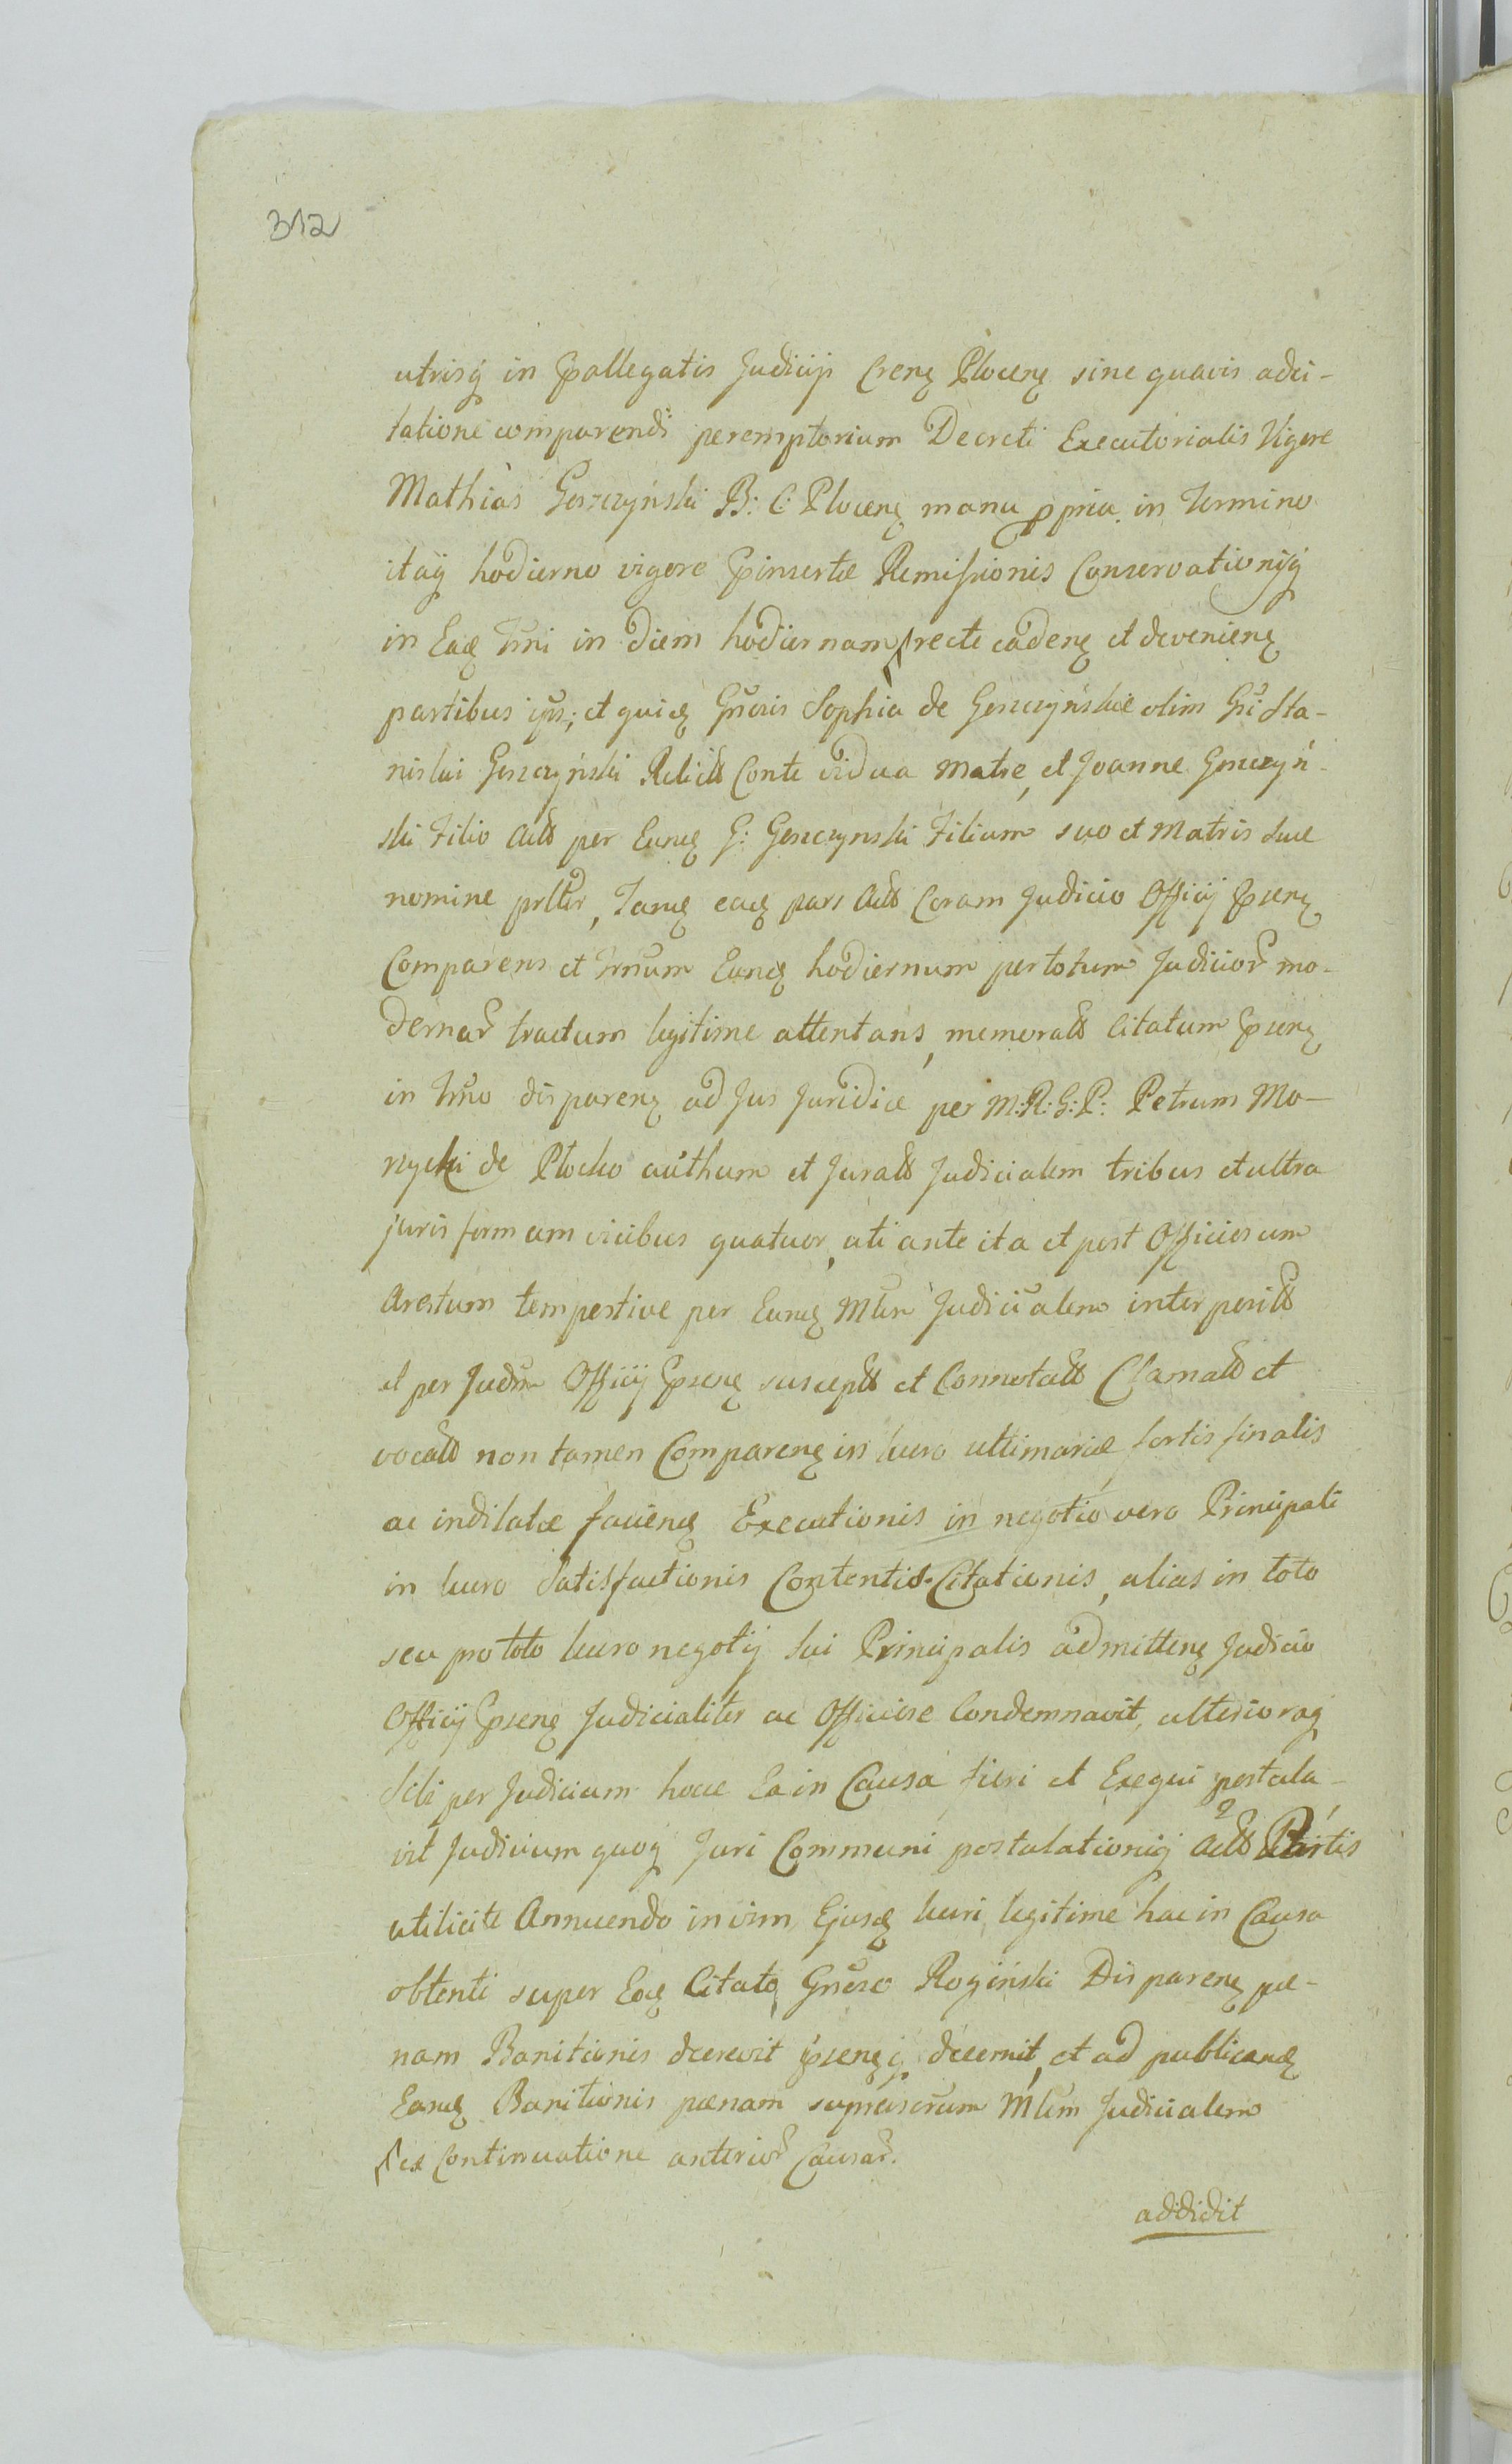 312
utrisq in pallegatis Judicijs Crens Plocens sine quavis adci-
tatione comparendi peremptorium Decreti Executorialis Vigore
Mathias Gorzczyński B: C: Plocens manu ppria in Termino
itaq hodierno vigore pinsertæ Remissionis Conservationisq
in Eund Trni in diem hodiernam recte cadens et deveniens
partibus ips; et quid Gnosis Sophia de Goszczyńskie olim Gsi Sta-
nislai Goszczyński Relicta Conte vidua Matre, et Joanne Goszczyń-
ski Filio Act per Eund G: Goszczynski Filium suo et Matris suæ
nomine prlter, Tand ead pars Act Coram Judicio Officij psens
Comparens et Trnum Eund hodiernum per totum Judicior mo-
dernar tractum legitime attentans, memorat Citatum psens
in Trno disparens ad Jus Juridice per M: R: G: P: Petrum Mo-
rzycki de Plocko authum et Jurat Judicialem tribus et ultra
juris formam vicibus quatuor, uti ante ita et post Officiosum
Arestum tempestive per Eund Mlem Judicialem interposit
et per Judm Officij psens suscept et Connotat Clamat et
vocat non tamen Comparens in lucro ultimariæ fortis finalis
ac indilatæ faciend Executionis in negotio vero Principali
in lucro Satisfactionis Contentis Citationis, alias in toto
seu pro toto lucro negotij sui Principalis admittens Judicio
Officij psens Judicialiter ac Officiose Condemnavit, ulterioraq
sibi per Judicium hocce Ea in Causa fieri et Exequi postula-
vit Judicium quoq Juri Communi postulationiq Act Partis
utilicite Annuendo in vim Ejusd lucri legitime hac in Causa
obtenti super Eod Citato Gnoso Rogiński Disparens pæ-
nam Banitionis decrevit psensq decernit, et ad publicand
Eand Banitionis pænam suprascrum Mlem Judicialem
ex Continuatione anterior Causar.
addidit